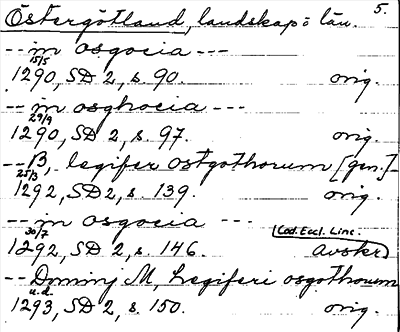 Östergötland, landskap o län. 5.
-- in osgocia ---
15/5
1290, SD 2, s. 90. orig.
-- in osghocia ---
29/9
1290, SD 2, s. 97. orig.
-- B, legifer ostgothorum [gen.] -
25/3
1292, SD 2, s. 139. orig.
-- in osgocia ---
30/7 Cod. Eccl. Linc.
1292, SD 2, s. 146. avskr.
-- Dominj M, Legiferi osgothorum
u.d.
1293, SD 2, s. 150. orig.